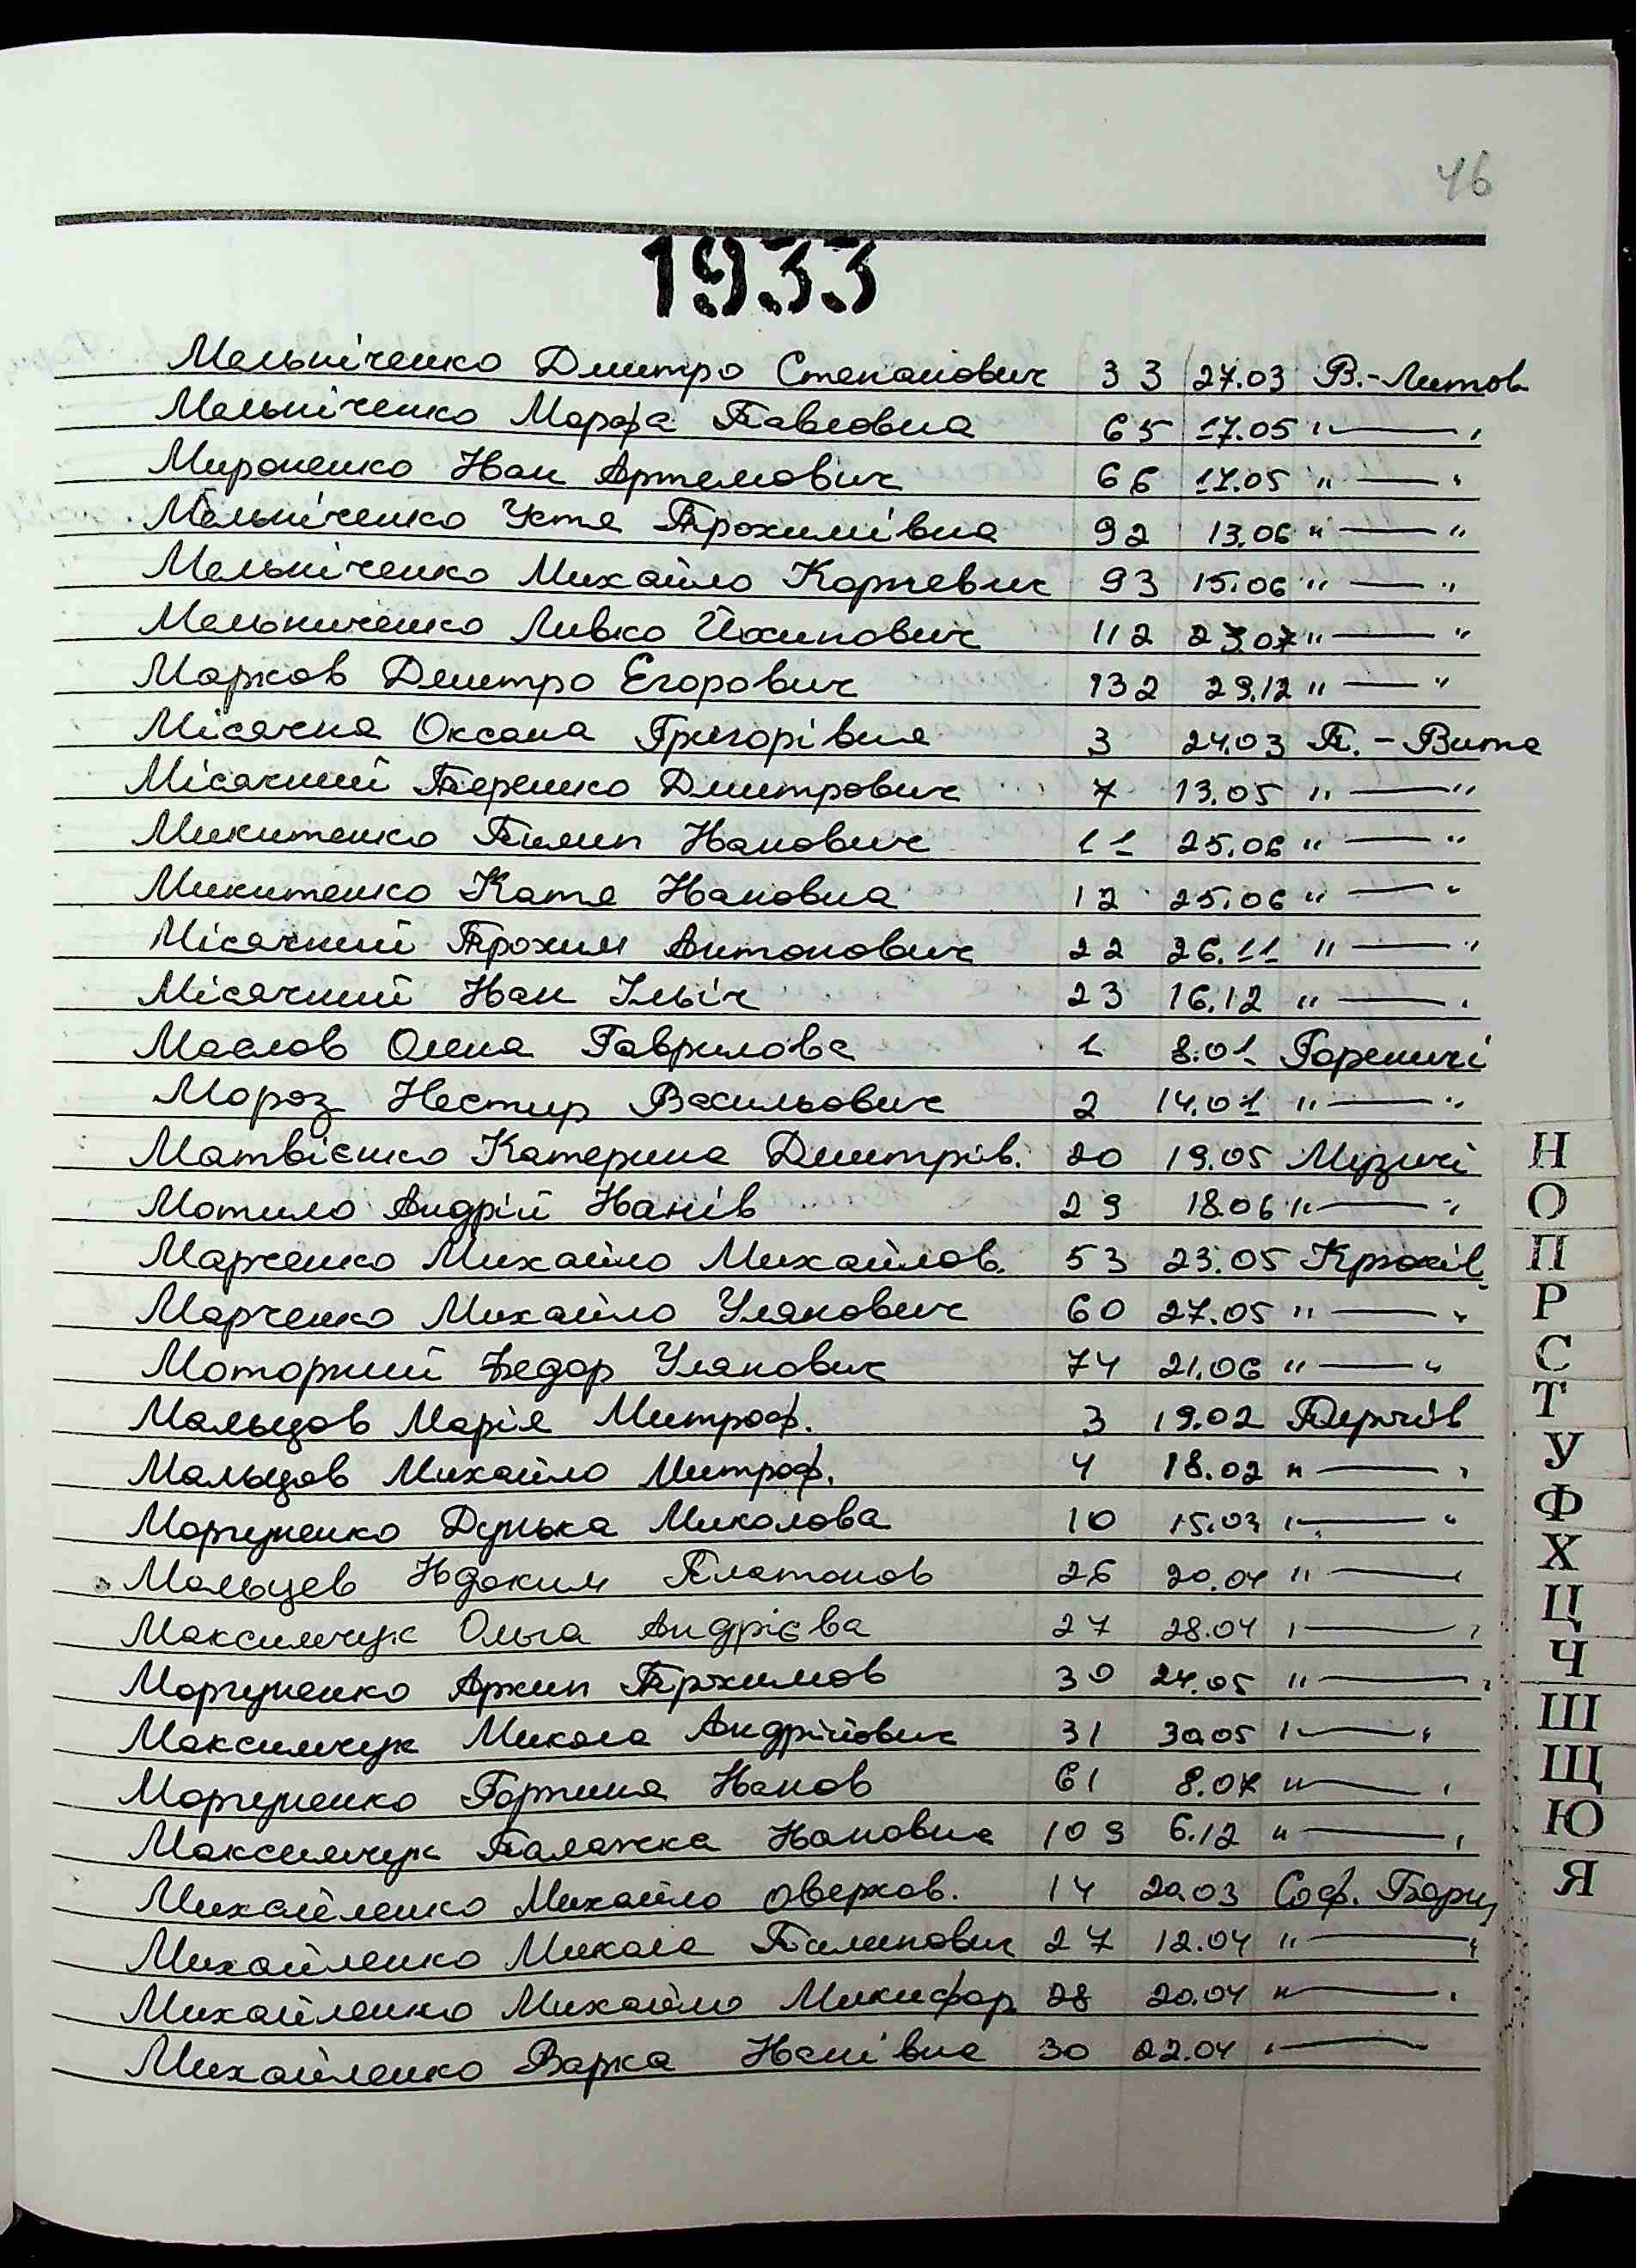 46
1933
Мельніченко Дмитро Степанович 33 27.03 В.-Литов
Мельніченко Марфа Павловна 65 17.05 "—"
Мироненко Иван Артемович 66 17.05 "—"
Мельніченко Устя Трохимівна 92 13.06 "—"
Мельніченко Михайло Корневич 93 15.06 "—"
Мельниченко Ливко Йохипович 112 23.07 "—"
Марков Дмитро Егорович 132 29.12 "—"
Місячна Оксана Григорівна 3 24.03 П.-Вита
Місячний Терешко Дмитрович 7 13.05 "—"
Микитенко Пилип Иванович 11 25.06 "—"
Микитенко Катя Ивановна 12 25.06 "—"
Місячний Трохим Антонович 22 26.11 "—"
Місячний Иван Ільіч 23 16.12 "—"
Маслов Олена Гаврилова 1 8.01 Гореничі
Мороз Нестир Васильович 2 14.01 "—"
Матвієнко Катерина Дмитрів. 20 19.05 Музичі
Мотило Андрій Иванів 29 18.06 "—"
Марченко Михайло Михайлов. 53 23.05 Крюків
Марченко Михайло Улянович 60 27.05 "—"
Моторний Федор Улянович 74 21.06 "—"
Мальцов Марія Митроф. 3 19.02 Перчів
Мальцов Михайло Митроф. 4 18.02 "—"
Моргуненко Дунька Миколова 10 15.03 "—"
Мальцев Ивдоким Платонов 26 20.04 "—
Максимчук Ольга Андрієва 27 28.04 "—"
Моргуненко Архип Трохимов 30 24.05 "—"
Максимчук Микола Андрійович 31 30.05 "—"
Моргуненко Горпина Иванов 61 8.07 "—"
Максимчук Палажка Ивановна 109 6.12 "—"
Михайленко Михайло Оверков. 14 20.03 Соф. Борщ
Михайленко Микола Пилипович 27 12.04 "—"
Михайленко Михайло Микифор 28 20.04 "—"
Михайленко Варка Иванівна 30 22.04 "—
Н
О
П
Р
С
Т
У
Ф
Х
Ц
Ч
Ш
Щ
Ю
Я